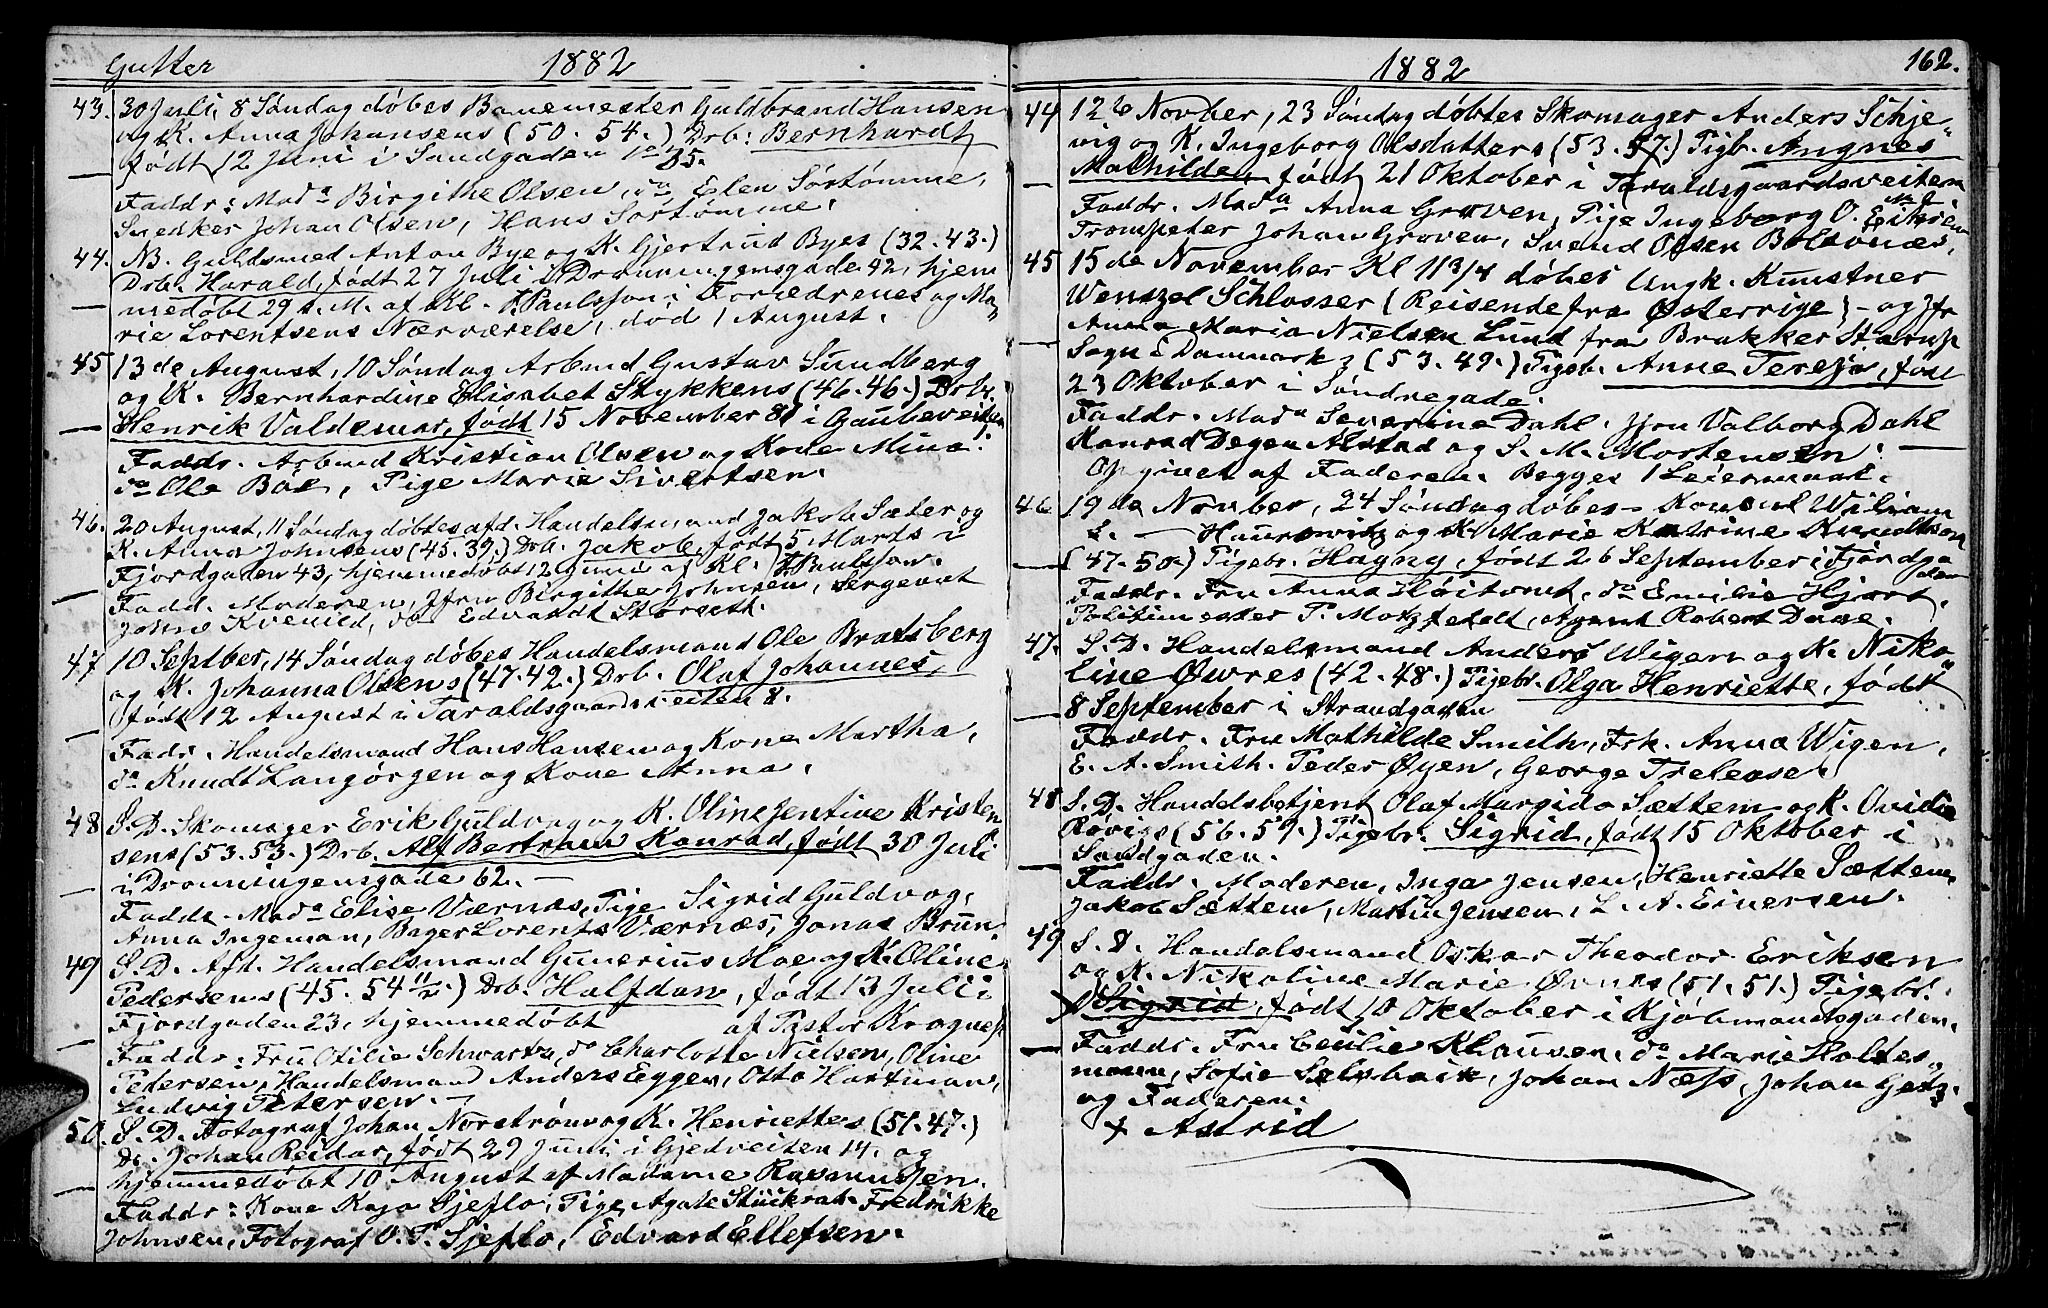 Gutter 1882
43. 30 Juli, 8 Søndag døbes Banemester Guldbrand Hansen
og K. Anna Johansens (50. 54.) Drb: Bernhardt
født 12 Juni i Sandgaden No 35.
Faddr: Mada Birgithe Olsen, do Elen Sørtømme,
Snedker Johan Olsen, Hans Sørtømme.
44. NB. Guldsmed Anton Bye og K. Gjertrud Byes (32. 43.)
Drb. Harald, født 27 Juli i Dronningensgade 42, hjem
medøbt 29 s. M. af Kl. F. Paulsson i Forældrenes og Ma„
rie Lorentsens Nærværelse, død 1 August.
45 13de August, 10 Søndag Arbmd Gustav Sundberg
og K. Bernhardine Elisabet Stykkens (46. 46.) Drb.
Henrik Valdemar, født 15 November 81 i Gaubeveiten
Faddr. Arbmd Kristian Olsen og Kone Mina.
do Ole Boe, Pige Marie Sivertsen.
46. 20 August, 11 Søndag døbtes afd. Handelsmand Jakob Sæter og
K. Anna Johnsens (45. 39.) Drb. Jakob, født 5 Marts i
Fjordgaden 43, hjemmedøbt 12 Juni af Kl. F. Paulsson.
Fadd. Moderen, Jfru Birgithe Johnsen, Sergeant
Johne Kvenild, do Edvardt Størseth.
47 10 Septber, 14 Søndag døbes Handelsmand Ole Bratsberg
og K. Johanna Olsens (47. 42.) Drb. Olaf Johannes,
født 12 August i Taraldsgaardsveiten 8.
Fadr. Handelsmand Hans Hansen og Kone Martha,
do Knudt Langørgen og Kone Anna.
48 S. D. Skomager Erik Guldvog og K. Oline Jentine Kristen
sens (53. 53.) Drb. Alf Bertram Konrad, født 30 Juli
i Dronningensgade 62. —
Faddr. Mada Elise Værnæs, Pige Sigrid Guldvog,
Anna Ingeman, Bager Lorents Værnæs, Jonas Brun.
49 S. D. Afh. Handelsmand Gunerius Moe og K. Oline
Pedersens (45. 54 11/2.) Drb. Halfdan, født 13 Juli i
Fjordgaden 23, hjemmedøbt af Pastor Krognes
Faddr: Fru Otilie Schwartz, do Charlotte Nielsen, Oline
Pedersen, Handelsmand Anders Eggen, Otto Hartman,
Ludvig Petersen. —
50. S. D. Fotograf Johan Norstrøm og K. Henriettes (51. 47.)
Dr. Johan Reidar, født 29 Juni i Gjedveiten 14. og
hjemmedøbt 10 August af Madame Rasmussen.
Faddr: Kone Kaja Sjeflo, Pige Agate Stückrat. Fredrikke
Johnsen, Fotograf O. T. Sjeflo, Edvard Ellefsen.
1882 162.
44 12te Novber, 23 Søndag døbtes Skomager Anders Schje„
vig og K. Ingeborg Olsdatters (53. 57.) Pigb. Angnes
Mathilde, født 21 Oktober i Taraldsgaardsveiten
No 2
Faddr. Mada Anna Grøven, Pige Ingeborg O. Eikrem
Trompeter Johan Grøven, Svend Olsen Bolsønæs,
45 15de November Kl 11 3/4 døbes Ungk. Kunstner
Wenszel Schlosser (Reisende fra Østerrige) - og Jfr
Anna Maria Nielsen Lund fra Brakker Starup
Sogn i Danmark, (53. 49.) Pigeb. Anne Tereja, født
23 Oktober i Søndregade.
Faddr. Mada Severine Dahl. Jfru Valborg Dahl
Konrad Degen Alstad og S. M. Mortensen. —
Opgivet af Faderen. Begges 1 Leiermaal.
46 19de Novber, 24 Søndag døbes - Konsul Wiliam
L. — Haurowitz og K. Marie Katrine Knudtson
(47. 50.) Pigebr. Hagny, født 26 September i Fjordga
den
Faddr. Fru Anna Høitomt, do Emilie Hjort,
Politimester P. Motzfeldt, Agent Robert Daae.
47. S. D. Handelsmand Anders Wigen og K. Niko„
line Øvres (42. 48.) Pigebr. Olga Henriette, født
8 September i Strandgaden
Faddr. Fru Mathilde Smith, Frk. Anna Wigen,
E. A. Smith. Peder Øyen, George Trelease.
48 S. D. Handelsbetjent Olaf Margido Sættem og K. Ovidia
Røvigs (56. 59.) Pigebr. Sigrid, født 15 Oktober i
Sandgaden.
Faddr. Moderen, Inga Jensen, Henriette Sættem
Jakob Sættem, Martin Jensen, L. A. Einersen.
49 S. D. Handelsmand Oskar Theodor Eriksen
og K. Nikoline Marie Øvres (51. 51.) Pigebr.
x Sigrid, født 10 Oktober i Kjøbmandsgaden.
Faddr. Fru Cecilie Klausen, do Marie Holtes„
mann, Sofie Salsbaik, Johan Næss, Johan Getz
og Faderen.
x Astrid